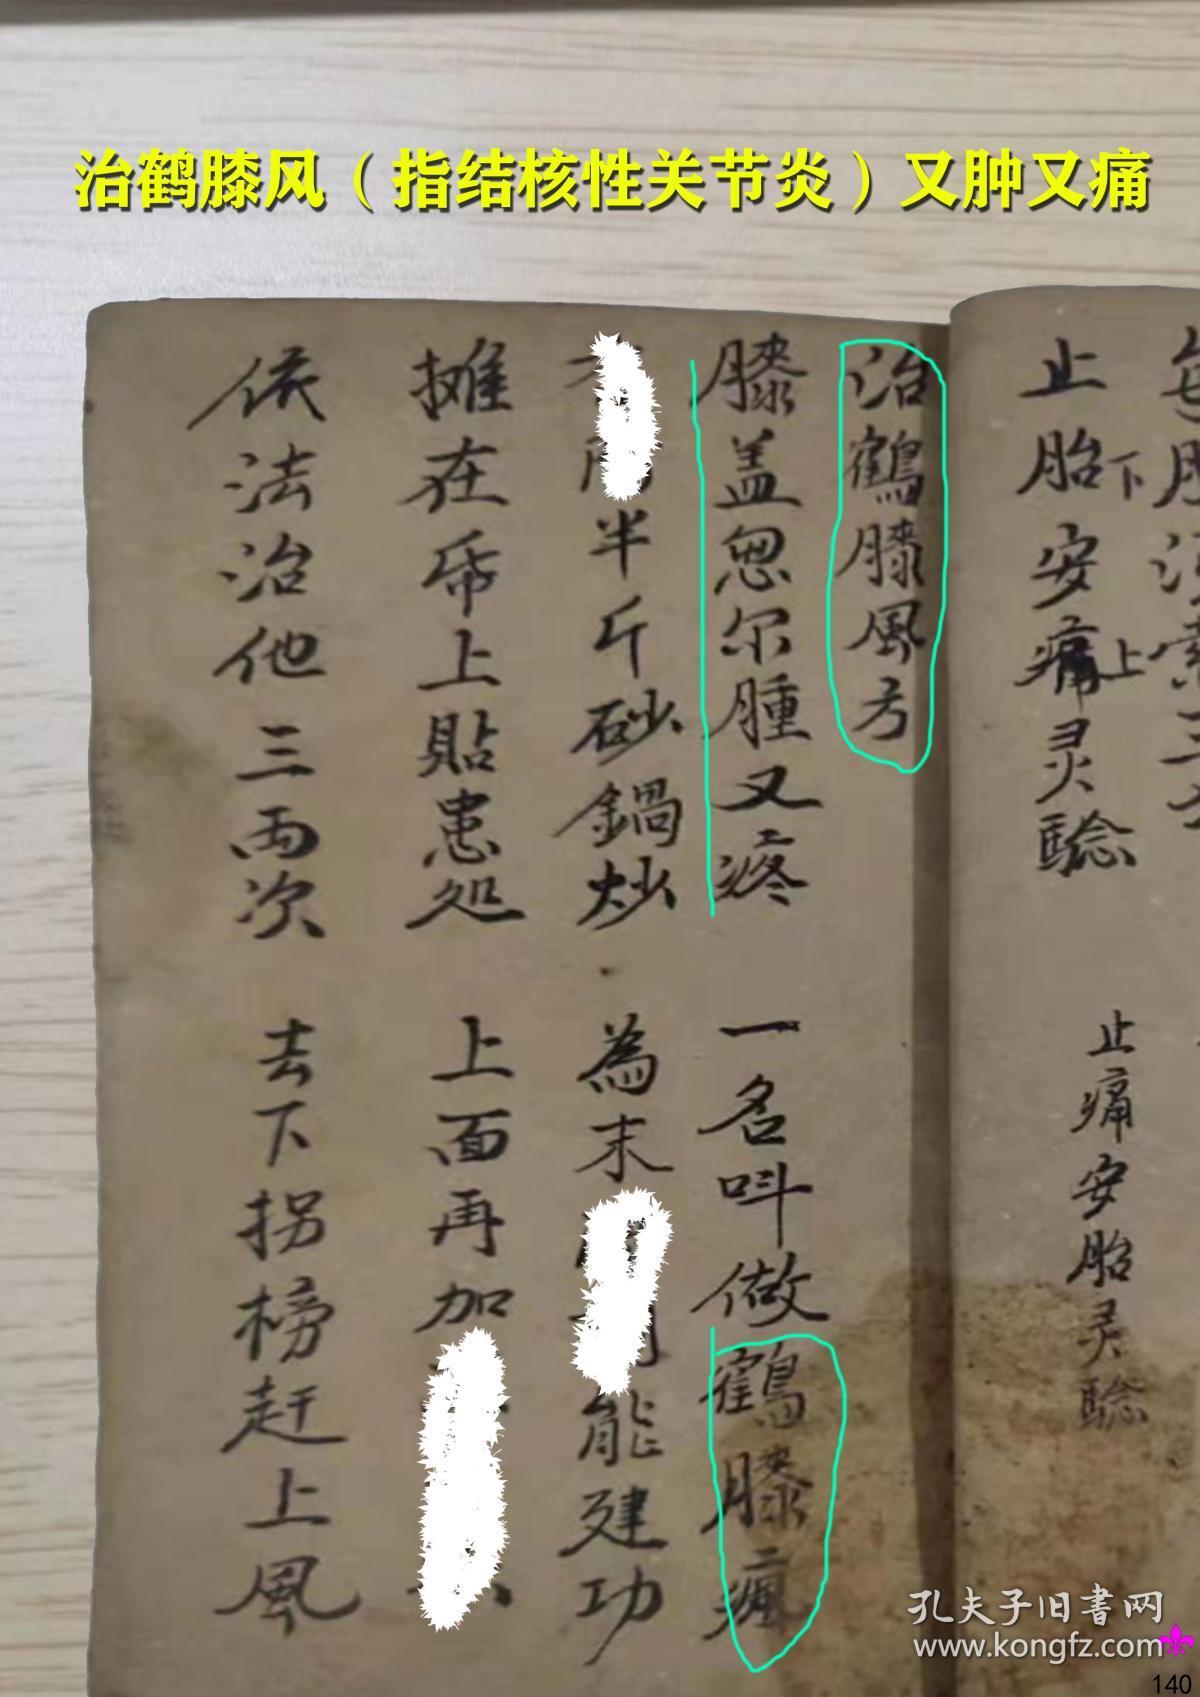 治鹤膝风（指结核性关节炎）又肿又痛
止胎安痛灵騐
下
上
止痛安胎灵騐
治鶴膝風方
膝盖忽尔腫又疼 一名呌做鶴膝瘋
半斤砂鍋炒 為末 能建功
摊在帋上貼患処 上面再加
依法治他三两次 去下拐榜赶上風
孔夫子旧書网
www.kongfz.com
140